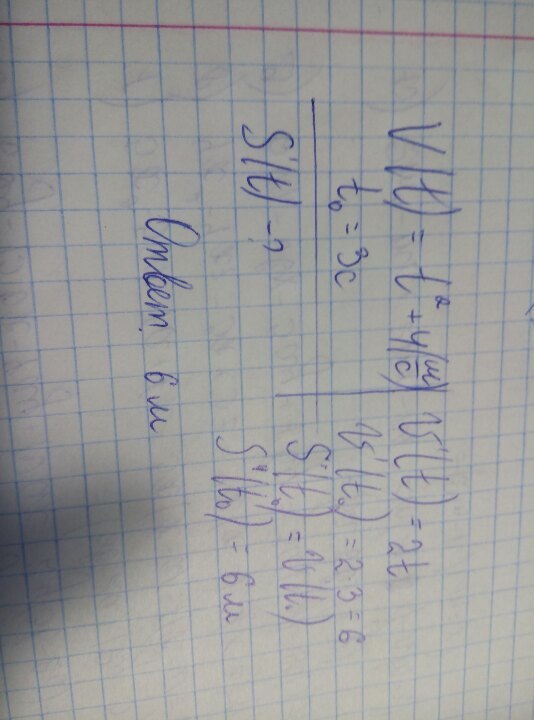 V(t) = t² + 4 (м/с)
t₀ = 3с
S(t) - ?
V'(t) = 2t
V'(t₀) = 2·3 = 6
S'(t) = V(t)
S'(t₀) = 6 м
Ответ 6 м